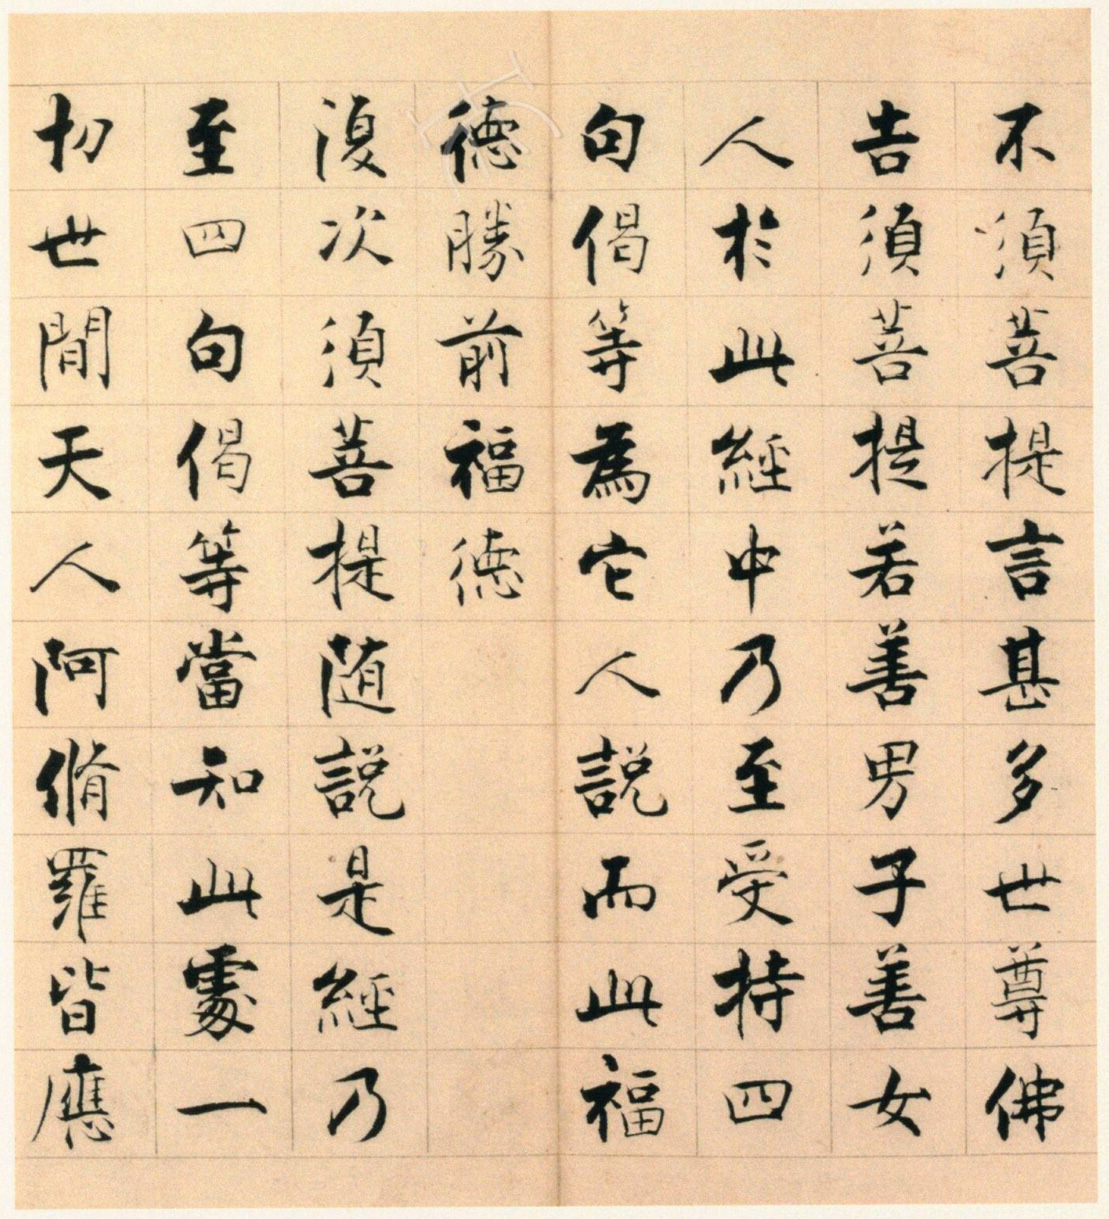 不須菩提言甚多世尊佛
告須菩提若善男子善女
人於此經中乃至受持四
句偈等為它人說而此福
德勝前福德
復次須菩提随說是經乃
至四句偈等當知此處一
切世間天人阿脩羅皆應